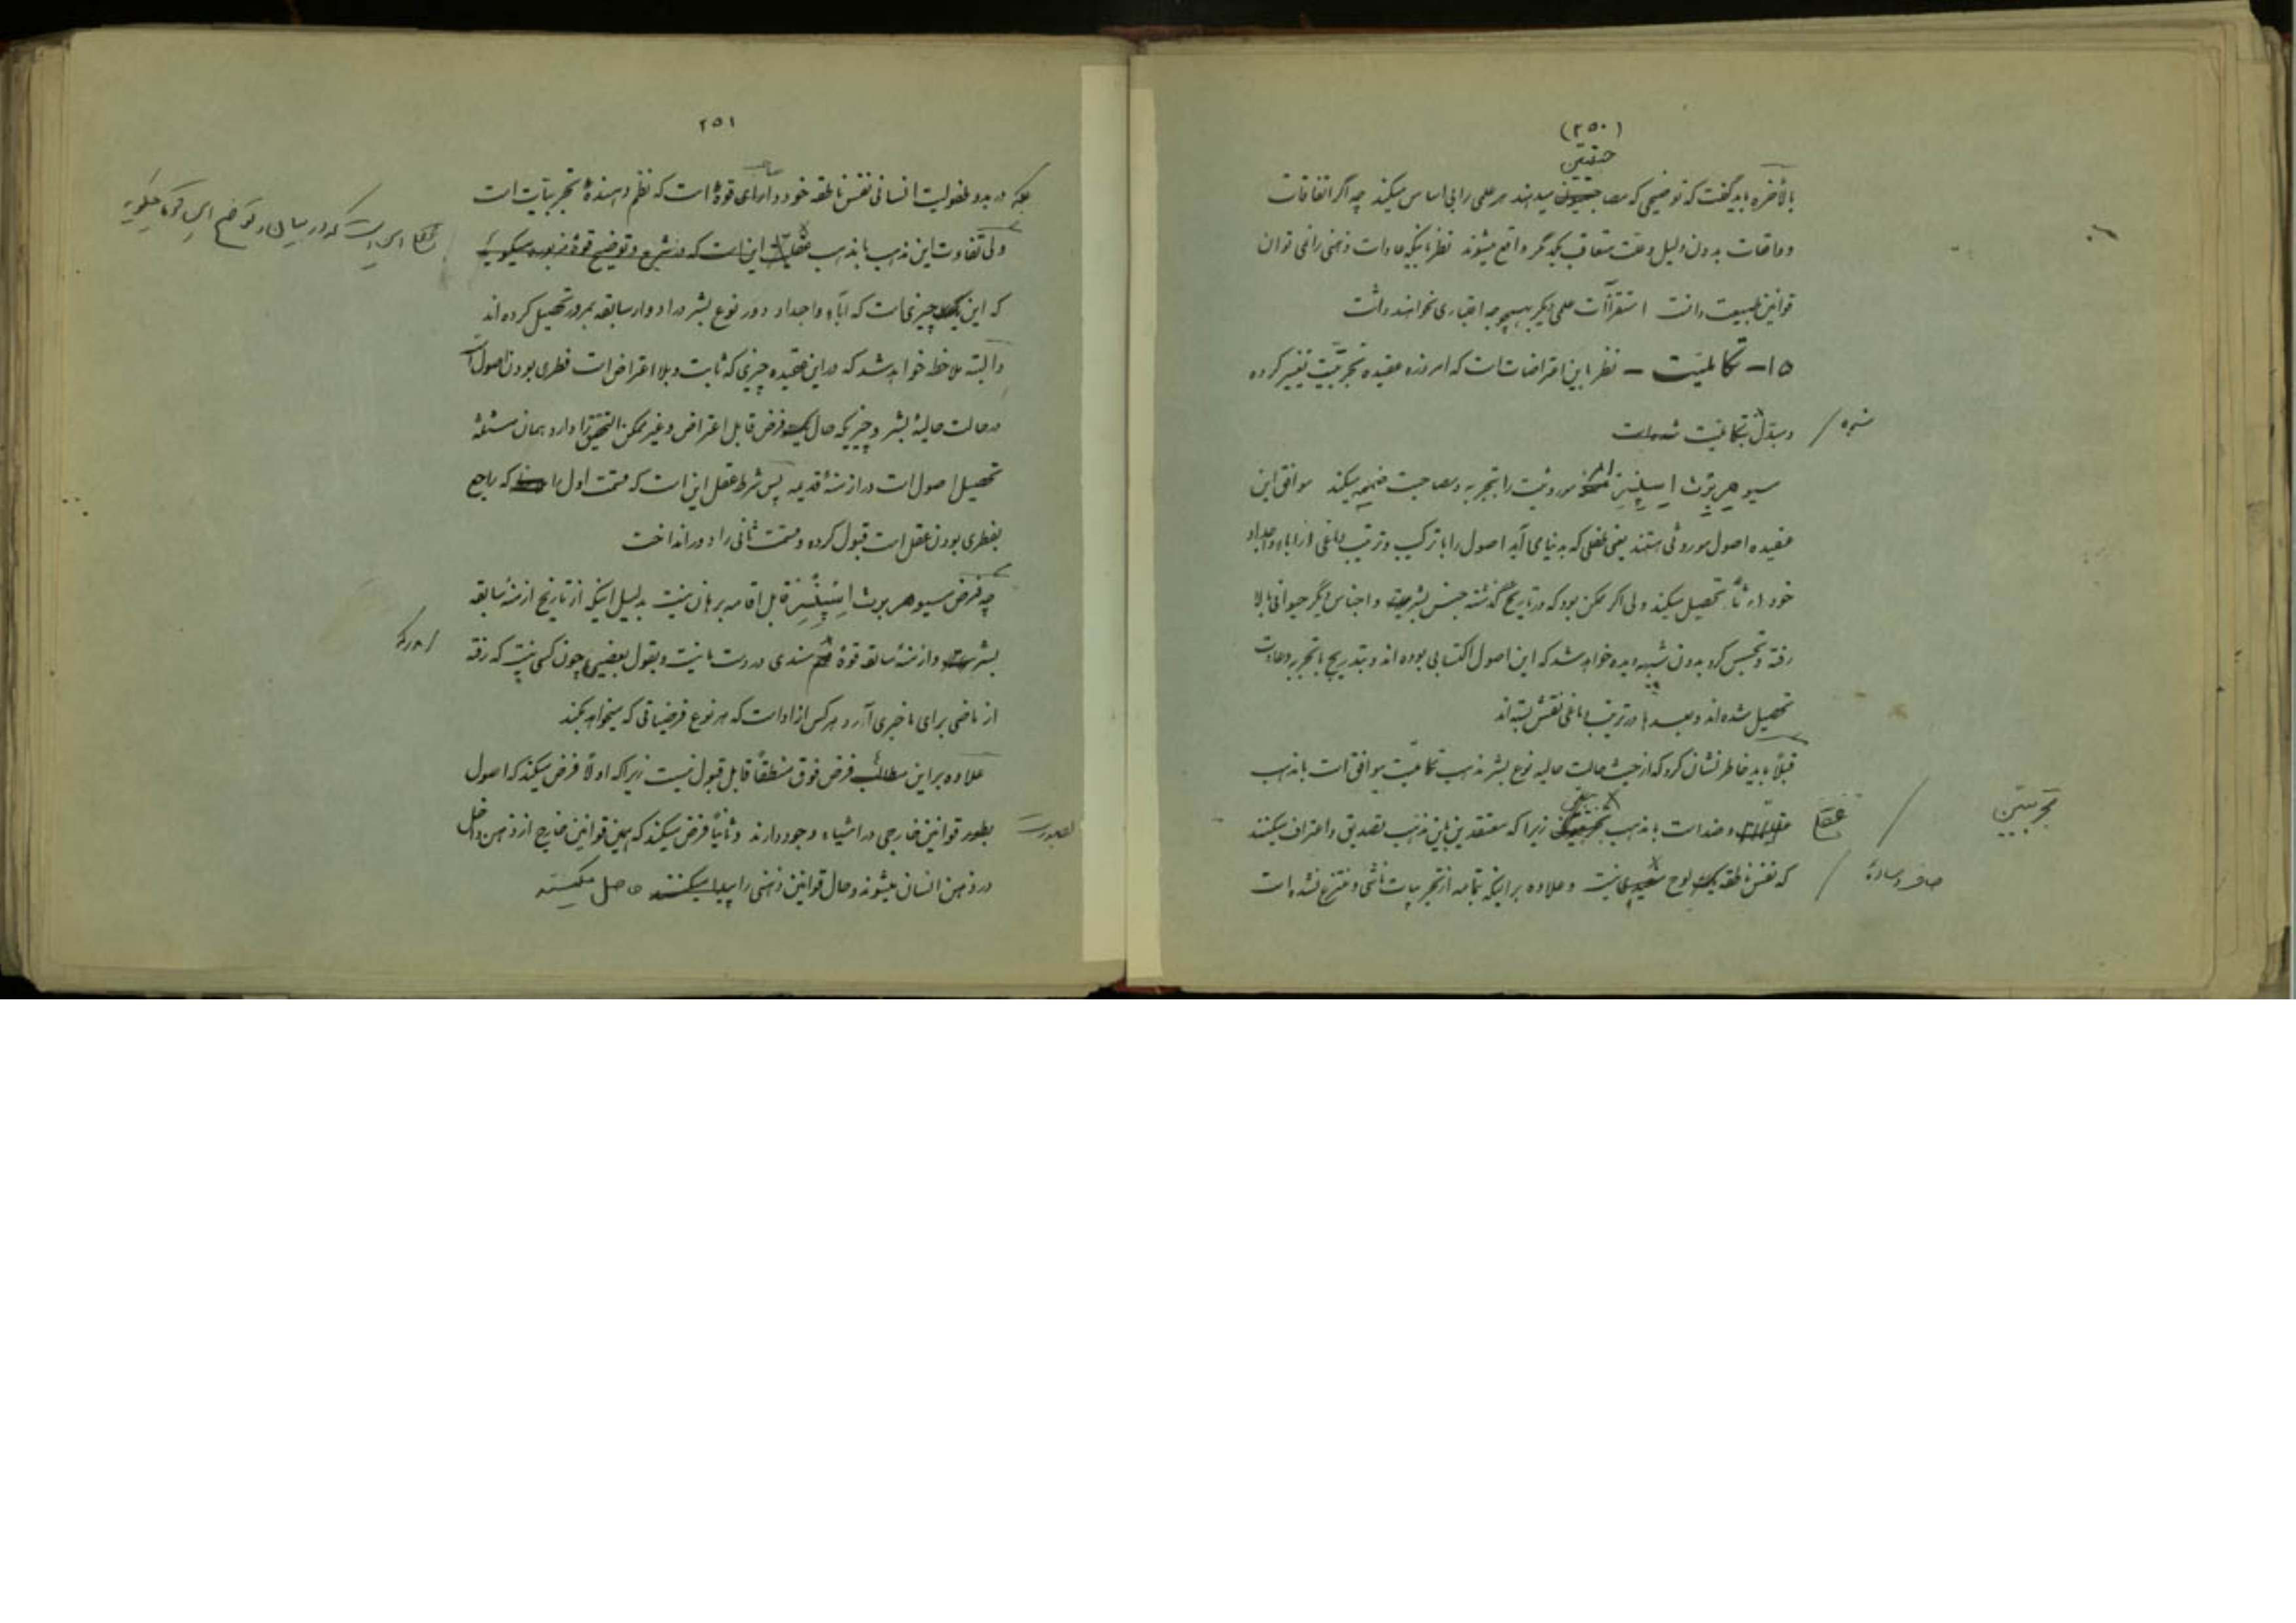 (۲۵۰)
بالأخره باید گفت که توضیحی که میدهند هر علمی را بی اساس میکند چه اگر اتفاقات
و واقعات بدون دلیل و علت متعاقب یکدیگر واقع میشوند نظر باینکه عادات ذهنی را نمی توان
قوانین طبیعت دانست استقراآت علمی دیگر بهیچوجه اعتباری نخواهند داشت
۱۵ – تکاملیّت – نظر باین اعتراضات است که امروزه عقیده تجربیّت تغییر کرده
و مبدّل بتکاملیت شده است
مسیو هربرث اسپنسِر موروثیت را بتجربه و مصاحبت ضمیمه میکند موافق این
عقیده اصول موروثی هستند یعنی طفلی که بدنیا می آید اصول را با ترکیب و ترتیب دماغی از اباء و اجداد
خود ارثاً تحصیل میکند ولی اگر ممکن بود که در تاریخ گذشته جنس بشر و اجناس دیگر حیوانی بالا
رفته و تجسس کرد بدون شبهه دیده خواهد شد که این اصول اکتسابی بوده اند و بتدریج با تجربه و عادت
تحصیل شده اند و بعدها در ترتیب دماغی نقش بسته اند
قبلاً باید خاطر نشان کرد که از حیث حالت حالیه نوع بشر مذهب تکاملیّت موافق است با مذهب
و ضد است با مذهب زیرا که معتقدین باین مذهب تصدیق و اعتراف میکنند
تجربیّین
که نفس ناطقه یک لوح نیست و علاوه بر اینکه بتمامه از تجربیات ناشی و منتزع نشده است
صاف و ساده
۲۵۱
بلکه در بدو طفولیت انسانی نفس ناطقه خود دارای قوهٔ است که نظم دهندهٔ تجربیّات است
ولی تفاوت این مذهب با مذهب این است که در تشریح و توضیح قوهٔ مزبوره میگوید
این است که در بیان و توضیح این قوه میگوید
که این یک چیزی است که اباء و اجداد دور نوع بشر در ادوار سابقه بمرور تحصیل کرده اند
و البته ملاحظه خواهد شد که در این عقیده چیزی که ثابت و بلا اعتراض است فطری بودن اصول است
در حالت حالیهٔ بشر و چیزیکه حال یک فرض قابل اعتراض و غیر ممکن التحقق را دارد همان مسئلهٔ
تحصیل اصول است در ازمنهٔ قدیمه پس شرط عقل این است که قسمت اول را که راجع
بفطری بودن عقل است قبول کرده و قسمت ثانی را دور انداخت
چه فرض مسیو هربرث اسپنسِر قابل اقامه برهان نیست بدلیل اینکه از تاریخ ازمنهٔ سابقه
بشر و از ازمنهٔ سابقه قوهٔ سندی در دست ما نیست و بقول بعضی چون کسی نیست که رفته
از ماضی برای ما خبری آرد هر کس آزاد است که هر نوع فرضیاتی که میخواهد بکند
علاوه بر این مطالب فرض فوق منطقاً قابل قبول نیست زیرا که اولاً فرض میکند که اصول
بطور قوانین خارجی در اشیاء وجود دارند و ثانیاً فرض میکند که همین قوانین خارج از ذهن داخل
بصورت
در ذهن انسان میشوند و حال قوانین ذهنی را پیدا میکنند حاصل میکنند